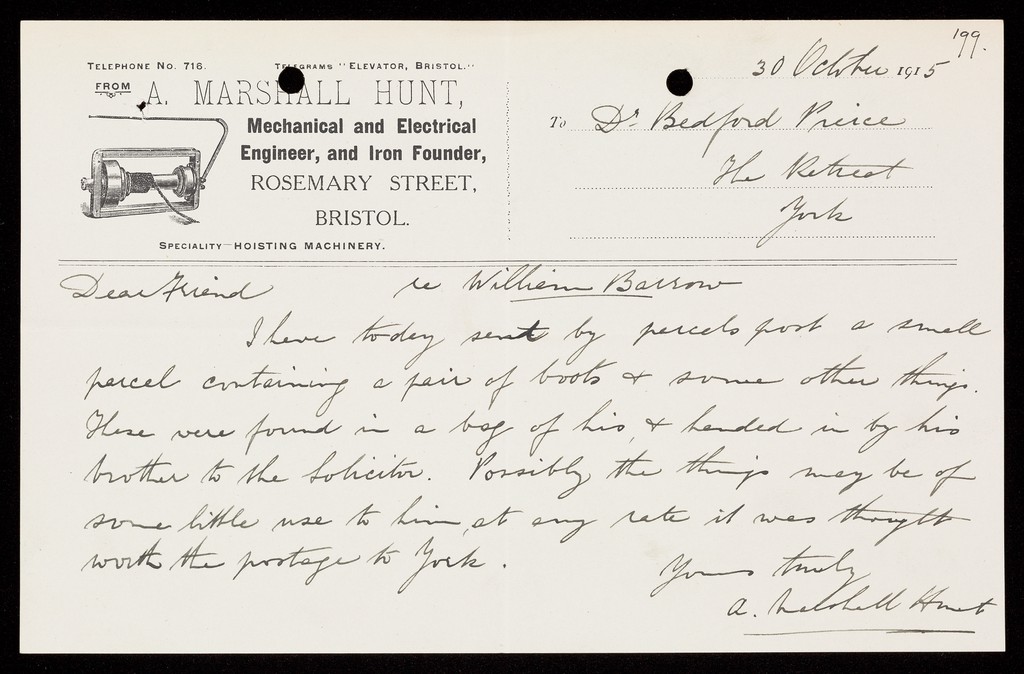 199.
TELEPHONE NO. 716. TELEGRAMS "ELEVATOR, BRISTOL."
30 October 1915
FROM A. MARSHALL HUNT,
Mechanical and Electrical
Engineer, and Iron Founder,
ROSEMARY STREET,
BRISTOL.
SPECIALITY—HOISTING MACHINERY.
To Dr Bedford Pierce
The Retreat
York
Dear Friend re William Barrow
I have today sent by parcels post a small
parcel containing a pair of boots & some other things.
These were found in a bag of his, & handed in by his
brother to the Solicitor. Possibly the things may be of
some little use to him, at any rate it was thought
worth the postage to York.
Yours truly
A. Marshall Hunt